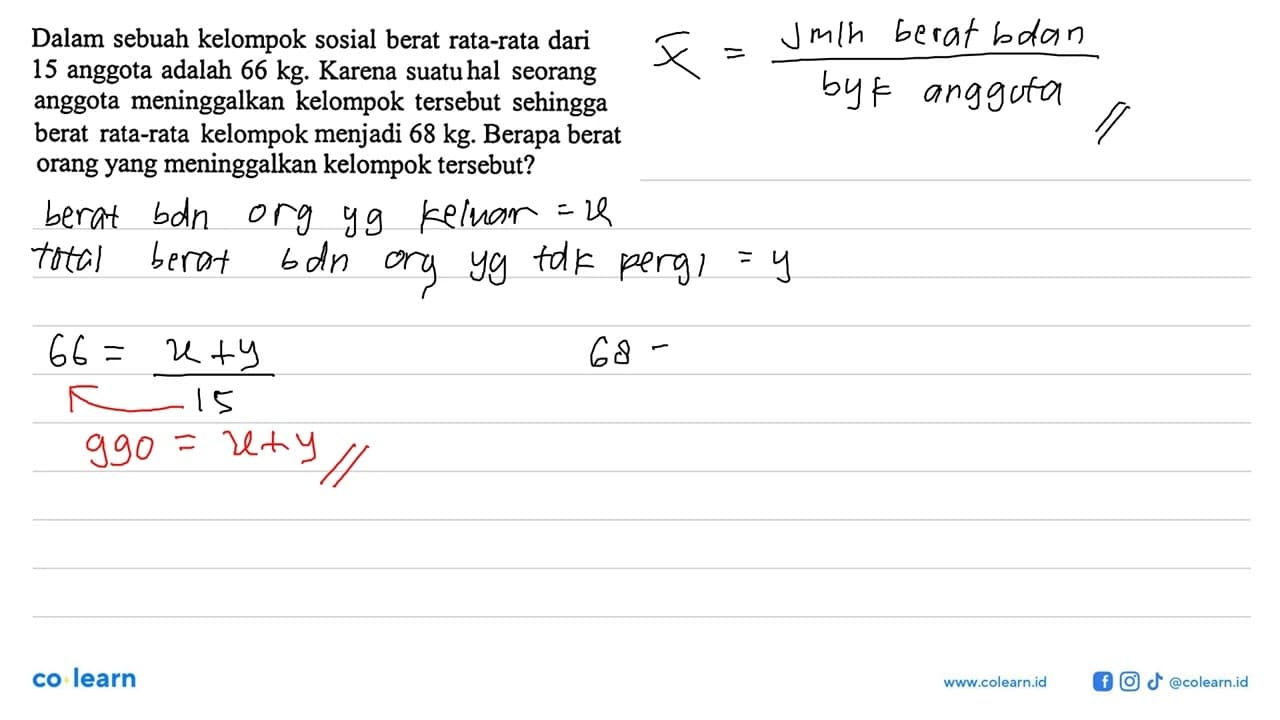 Dalam sebuah kelompok sosial berat rata-rata dari
15 anggota adalah 66 kg. Karena suatu hal seorang
anggota meninggalkan kelompok tersebut sehingga
berat rata-rata kelompok menjadi 68 kg. Berapa berat
orang yang meninggalkan kelompok tersebut?
x̄ = Jmlh berat bdan
byk anggota //
berat bdn org yg keluar = x
total berat bdn org yg tdk pergi = y
66 = x + y
15
990 = x + y //
68 -
co learn
www.colearn.id
@colearn.id